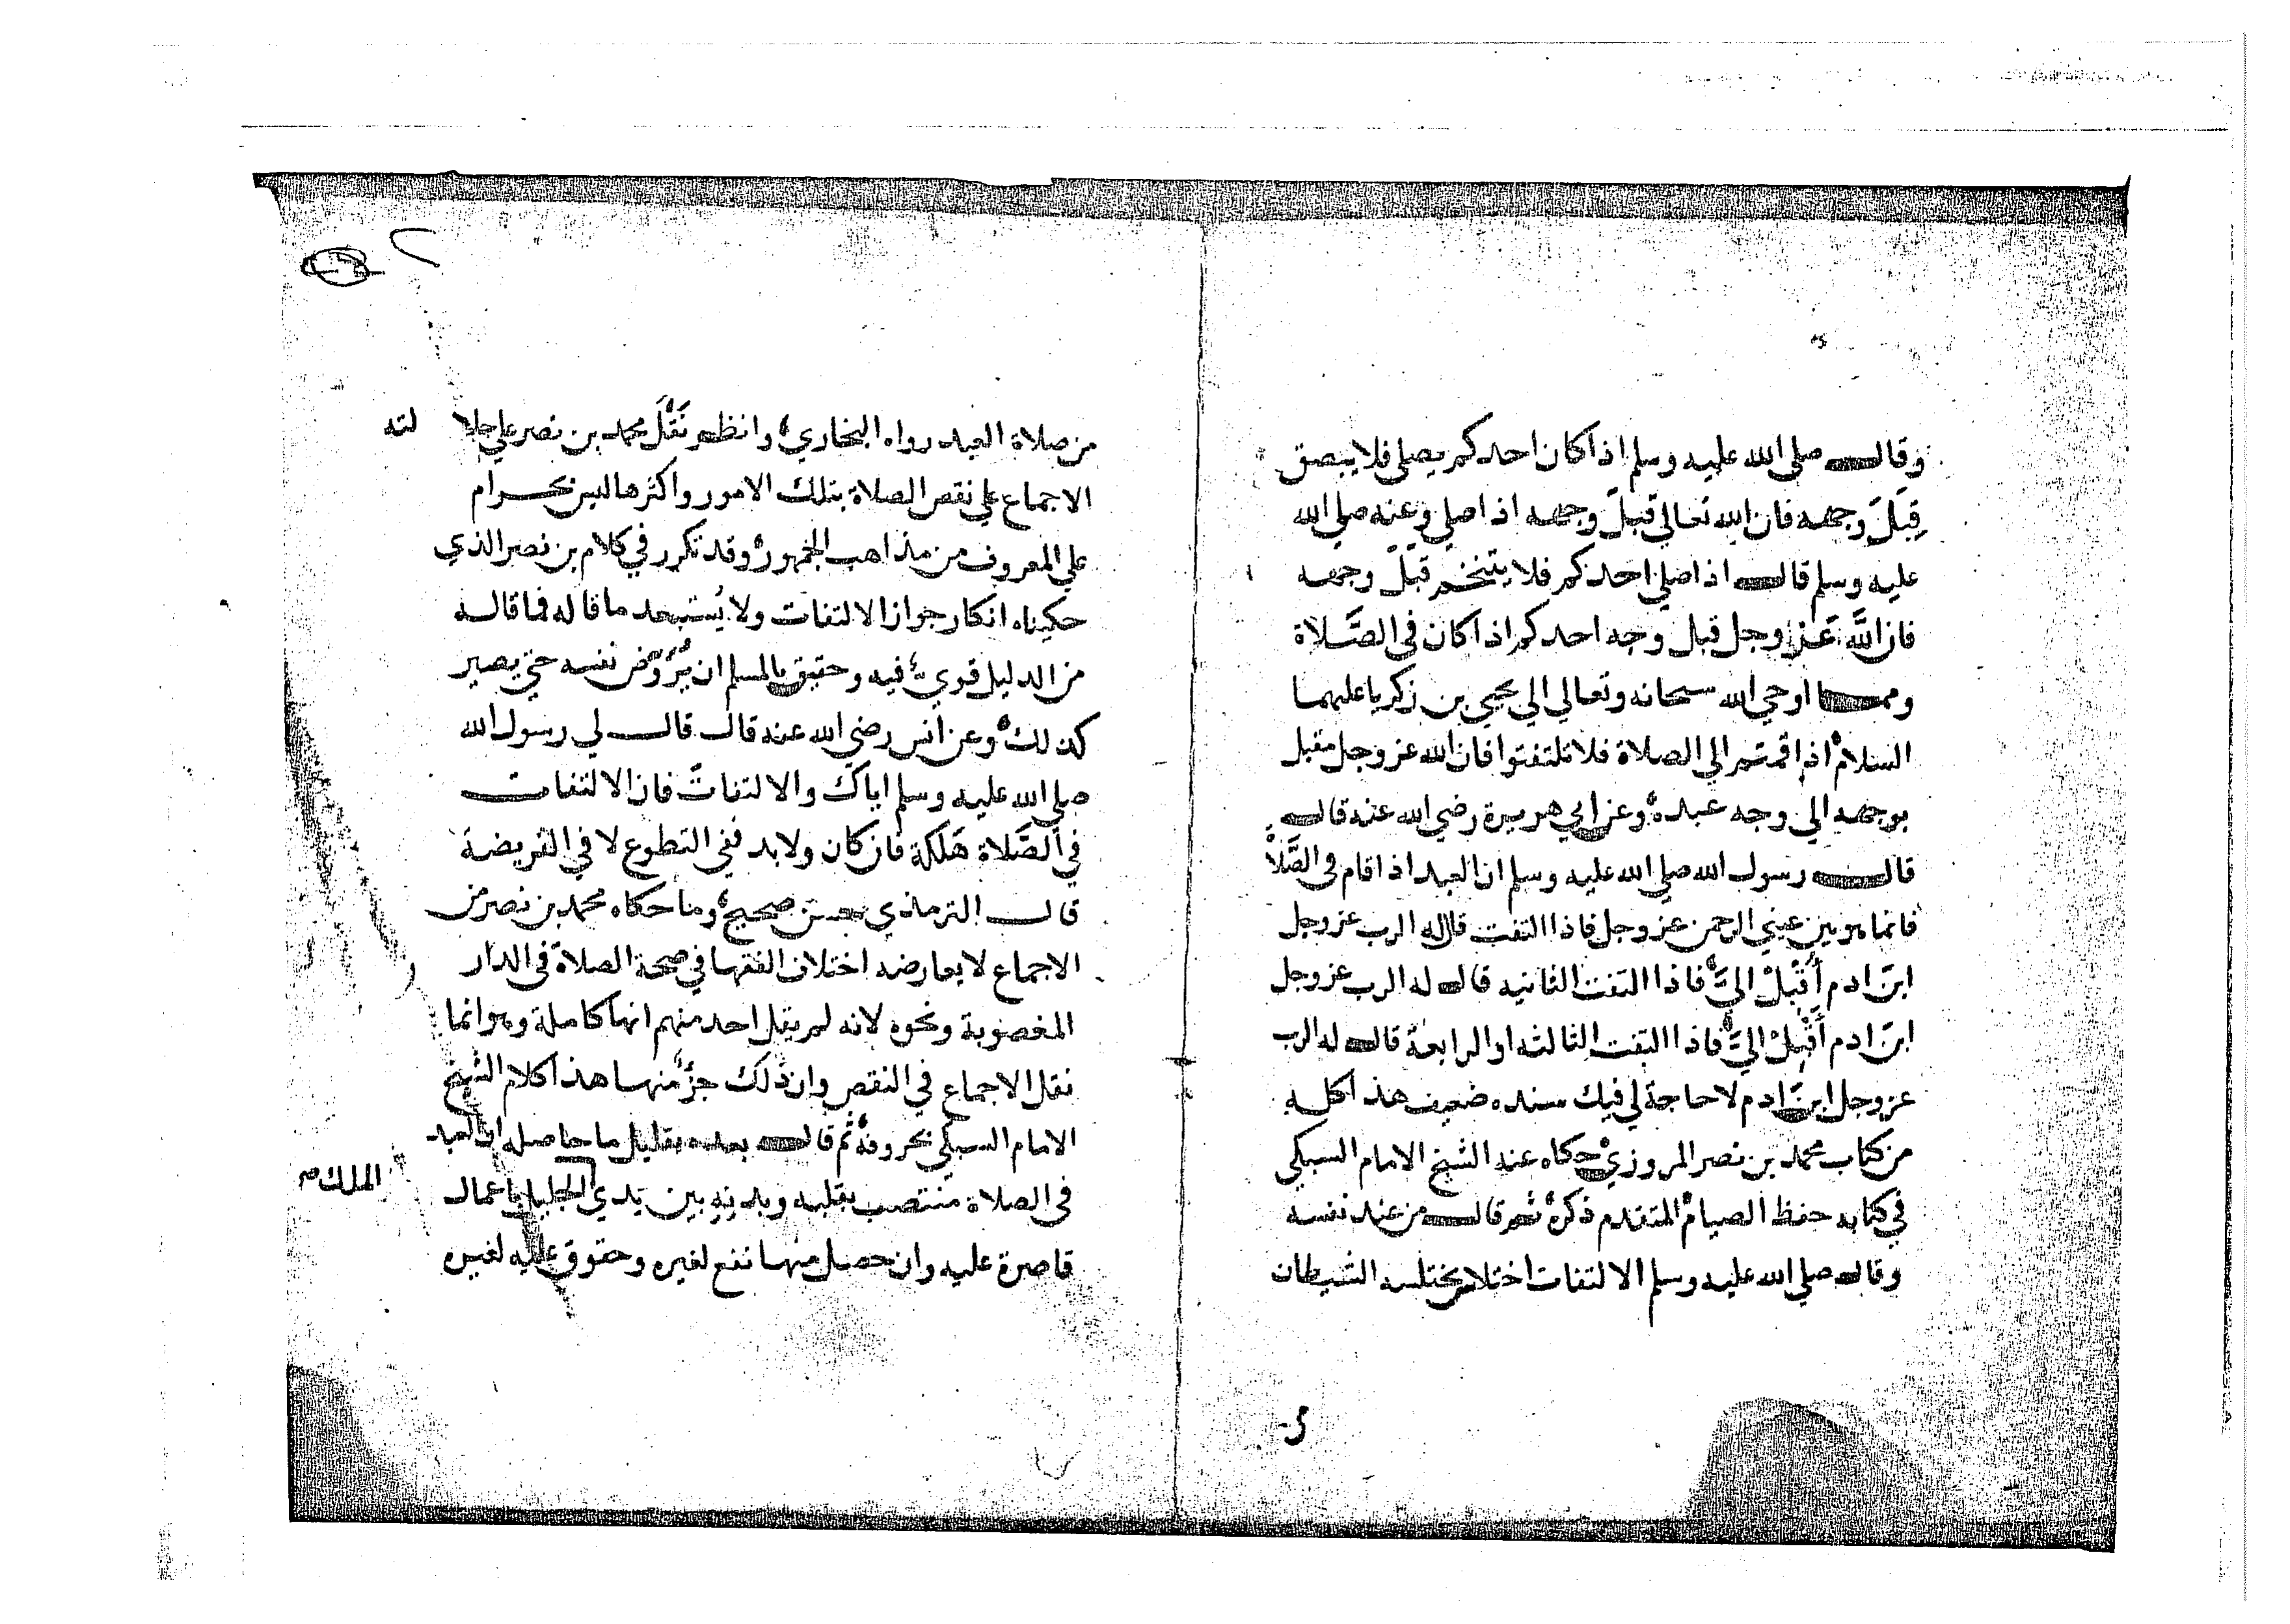 وقال صلي الله عليه وسلم اذا كان احدكم يصلي فلا يبصق
قِبَلَ وجهه فان الله تعالي قِبَلَ وجهه اذا صلي وعنه صلي الله
عليه وسلم قال اذا صلي احدكم فلا يتنخم قبَلَ وجهه
فان اللَّه عَز وجل قبل وجه احدكم اذا كان في الصَّلاة
ومما اوحي الله سبحانه وتعالي الي يحيي بن زكريا عليهما
السلام اذا قمتم الي الصلاة فلا تلتفتوا فان الله عز وجل مقبل
بوجهه الي وجه عبده وعن ابي هريرة رضي الله عنه قال
قال رسول الله صلي الله عليه وسلم ان العبد اذا قام في الصَّلاة
فانما هو بين عيني الرحمن عز وجل فاذا التفت قال له الرب عز وجل
ابنَ ادم أَقْبِلْ اليَّ فاذا التفت الثانيه قال له الرب عز وجل
ابنَ ادم أَقْبِلْ اليَّ فاذا التفت الثالثه او الرابعة قال له الرب
عز وجل ابنَ ادم لا حاجة لي فيك سنده ضعيف هذا كله
من كتاب محمد بن نصر المروزي حكاه عنه الشيخ الامام السبكي
في كتابه حفظ الصيام المتقدم ذكره ثم قال من عند نفسه
وقال صلي الله عليه وسلم الالتفات اختلاس يختلسه الشيطان
من صلاة العبد رواه البخاري وانظر نَقْلَ محمد بن نصر علي جلالته
الاجماع علي نقص الصلاة بتلك الامور واكثرها ليس بحرام
علي المعروف من مذاهب الجمهور وقد تكرر في كلام بن نصر الذي
حكيناه انكار جواز الالتفات ولا يُستبعد ما قاله فما قاله
من الدليل قوي فيه وحقيق بالمسلم ان يُرَوِّض نفسه حتي يصير
كذلك وعن انس رضي الله عنه قال قال لي رسول الله
صلي الله عليه وسلم اياك والالتفاتَ فان الالتفات
في الصَّلاة هَلكة فان كان ولا بد ففي التطوع لا في الفريضة
قال الترمذي حسن صحيح وما حكاه محمد بن نصر من
الاجماع لا يعارضه اختلاف الفقها في صحة الصلاة في الدار
المغصوبة ونحوه لانه لم يقل احد منهم انها كاملة وهو انما
نقل الاجماع في النقص وان ذلك جزْ منها هذا كلام الشيخ
الامام السبكي بحروفه ثم قال بعده بقليل ما حاصله ان العبد
في الصلاة منتصب بقلبه وبدنه بين يدي الملك الجليل باعمال
قاصرة عليه وان حصل منها نفع لغيره وحقوق عليه لغيره